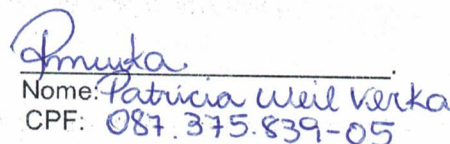 Nome: Patricia Weil Verka
CPF: 087.375.839-05